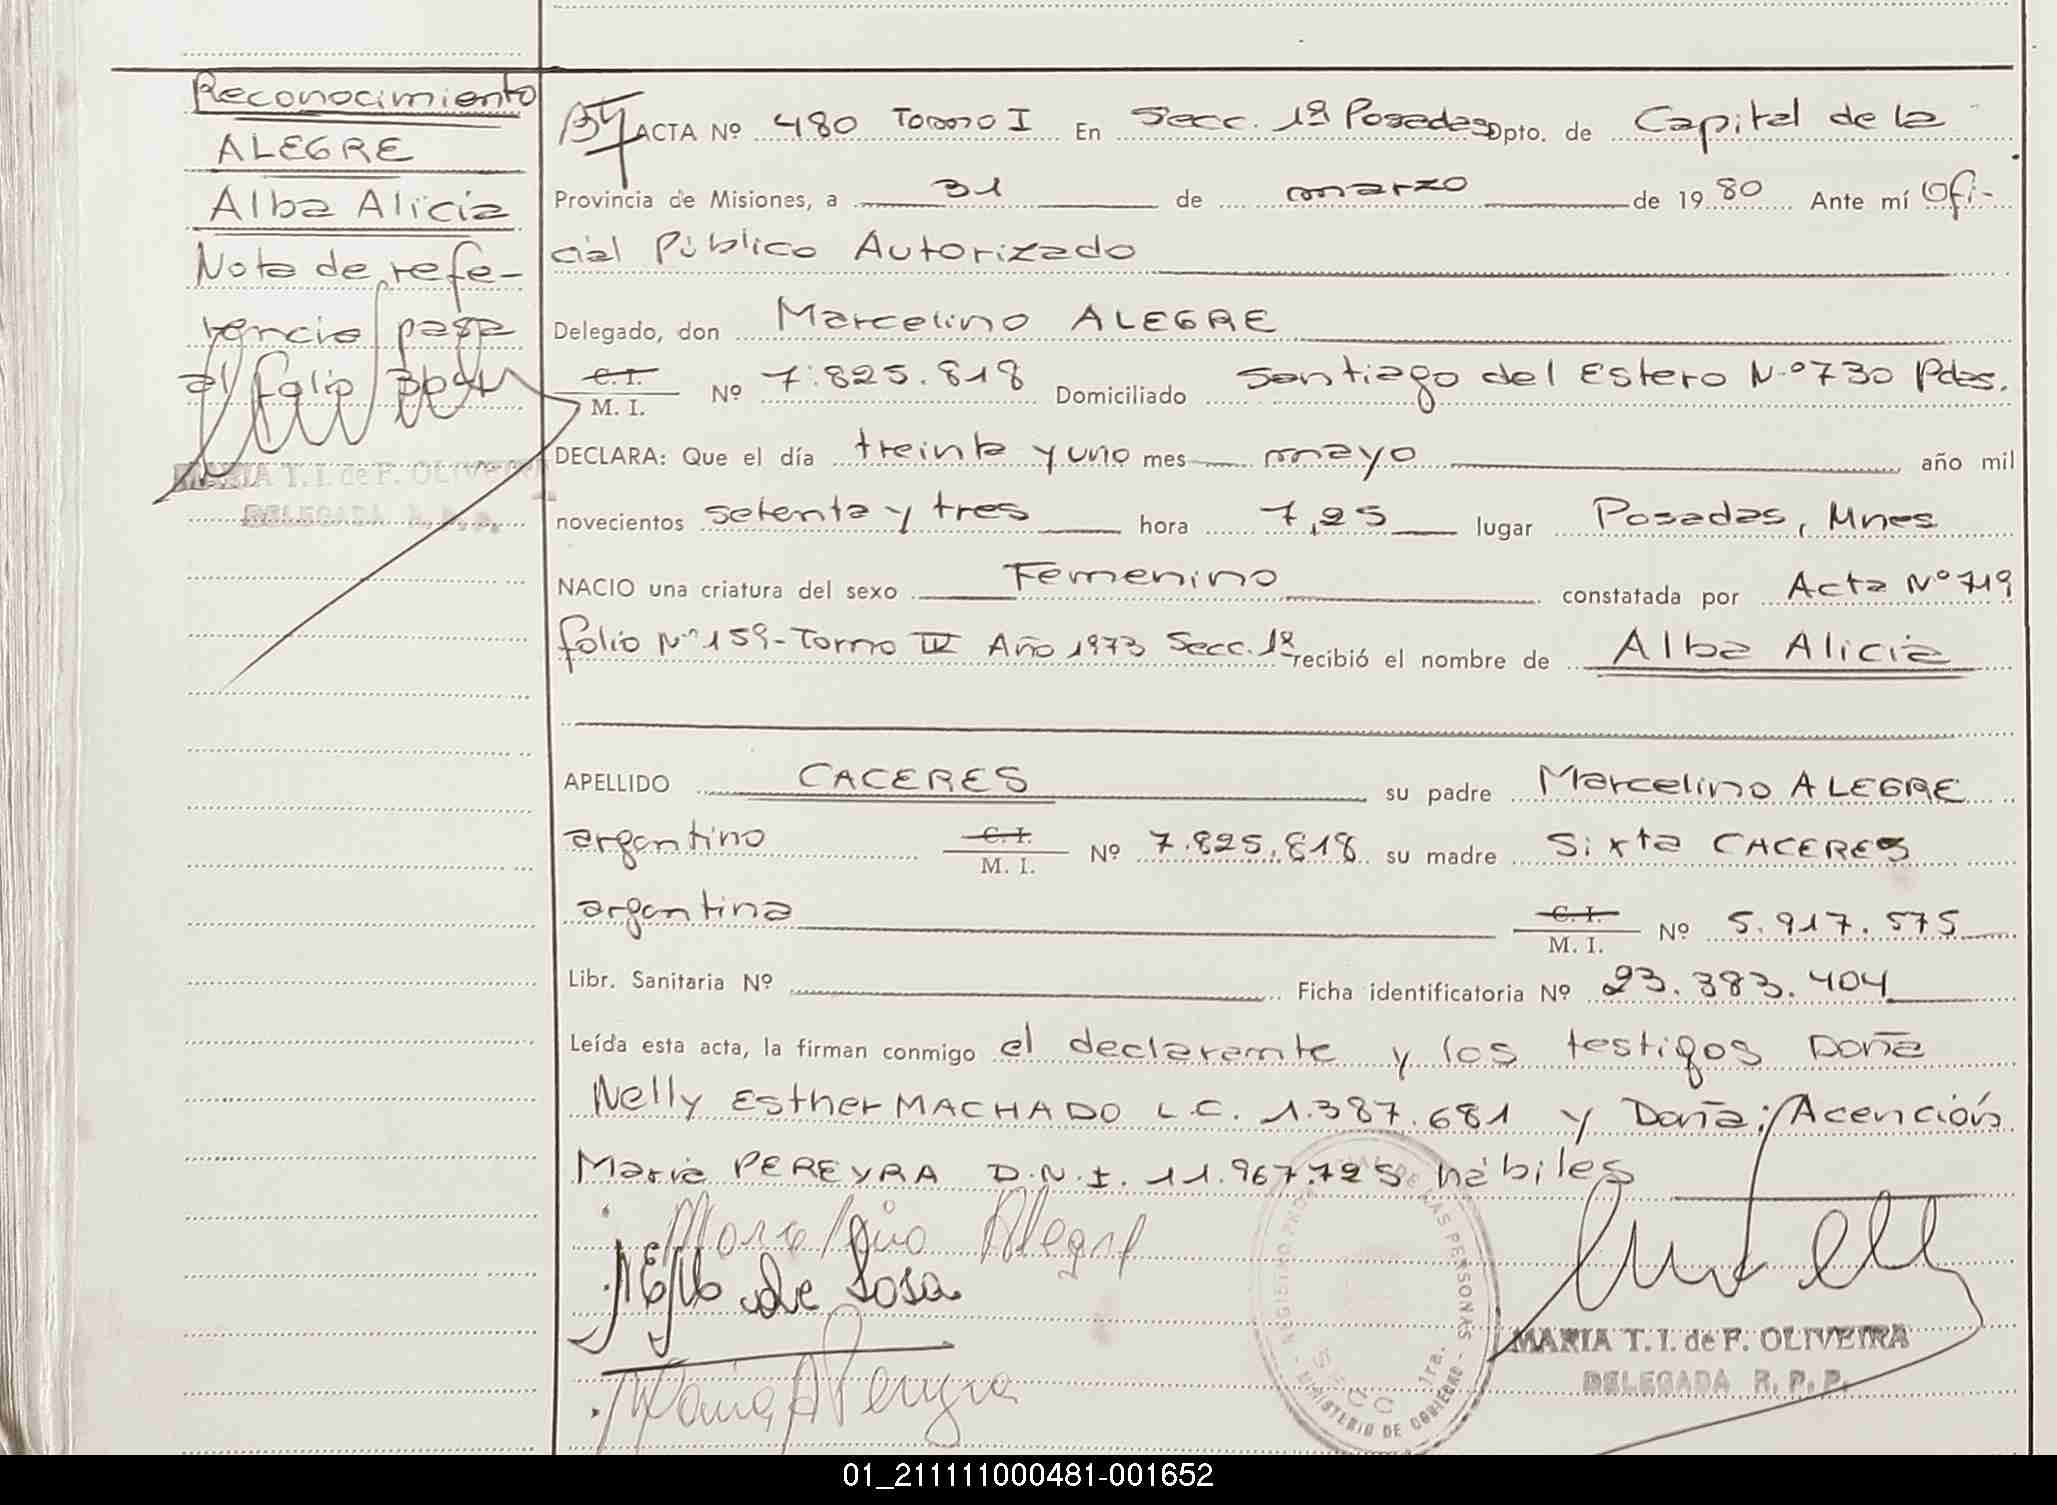 Reconocimiento
ALEGRE
Alba Alicia
Nota de refe-
rencia pasa
al folio
MARIA T. I. de F. OLIVEIRA
DELEGADA R. P. P.
ACTA Nº 480 Tomo I En Secc. 1ª Posadas Dpto. de Capital de la
Provincia de Misiones, a 31 de marzo de 1980 Ante mí Ofi-
cial Público Autorizado
Delegado, don Marcelino ALEGRE
C. I.
M. I. Nº 7.825.818 Domiciliado Santiago del Estero Nº 730 Pdas.
DECLARA: Que el día treinta y uno mes mayo año mil
novecientos setenta y tres hora 7,25 lugar Posadas, Mnes
NACIO una criatura del sexo Femenino constatada por Acta Nº 719
folio Nº 159-Tomo IV Año 1973 Secc. 1ª recibió el nombre de Alba Alicia
APELLIDO CACERES su padre Marcelino ALEGRE
argentino C. I. M. I. Nº 7.825.818 su madre Sixta CACERES
argentina C. I. M. I. Nº 5.917.575
Libr. Sanitaria Nº Ficha identificatoria Nº 23.383.404
Leída esta acta, la firman conmigo el declarante y los testigos Doña
Nelly Esther MACHADO L.C. 1.387.681 y Doña: Acención
María PEREYRA D.N.I. 11.967.725 hábiles
Marcelino Alegre
de Sosa
María A Pereyra
REGISTRO PROVINCIAL DE LAS PERSONAS
SECC. 1ra.
MINISTERIO DE GOBIERNO
MARIA T. I. de F. OLIVEIRA
DELEGADA R. P. P.
01_211111000481-001652